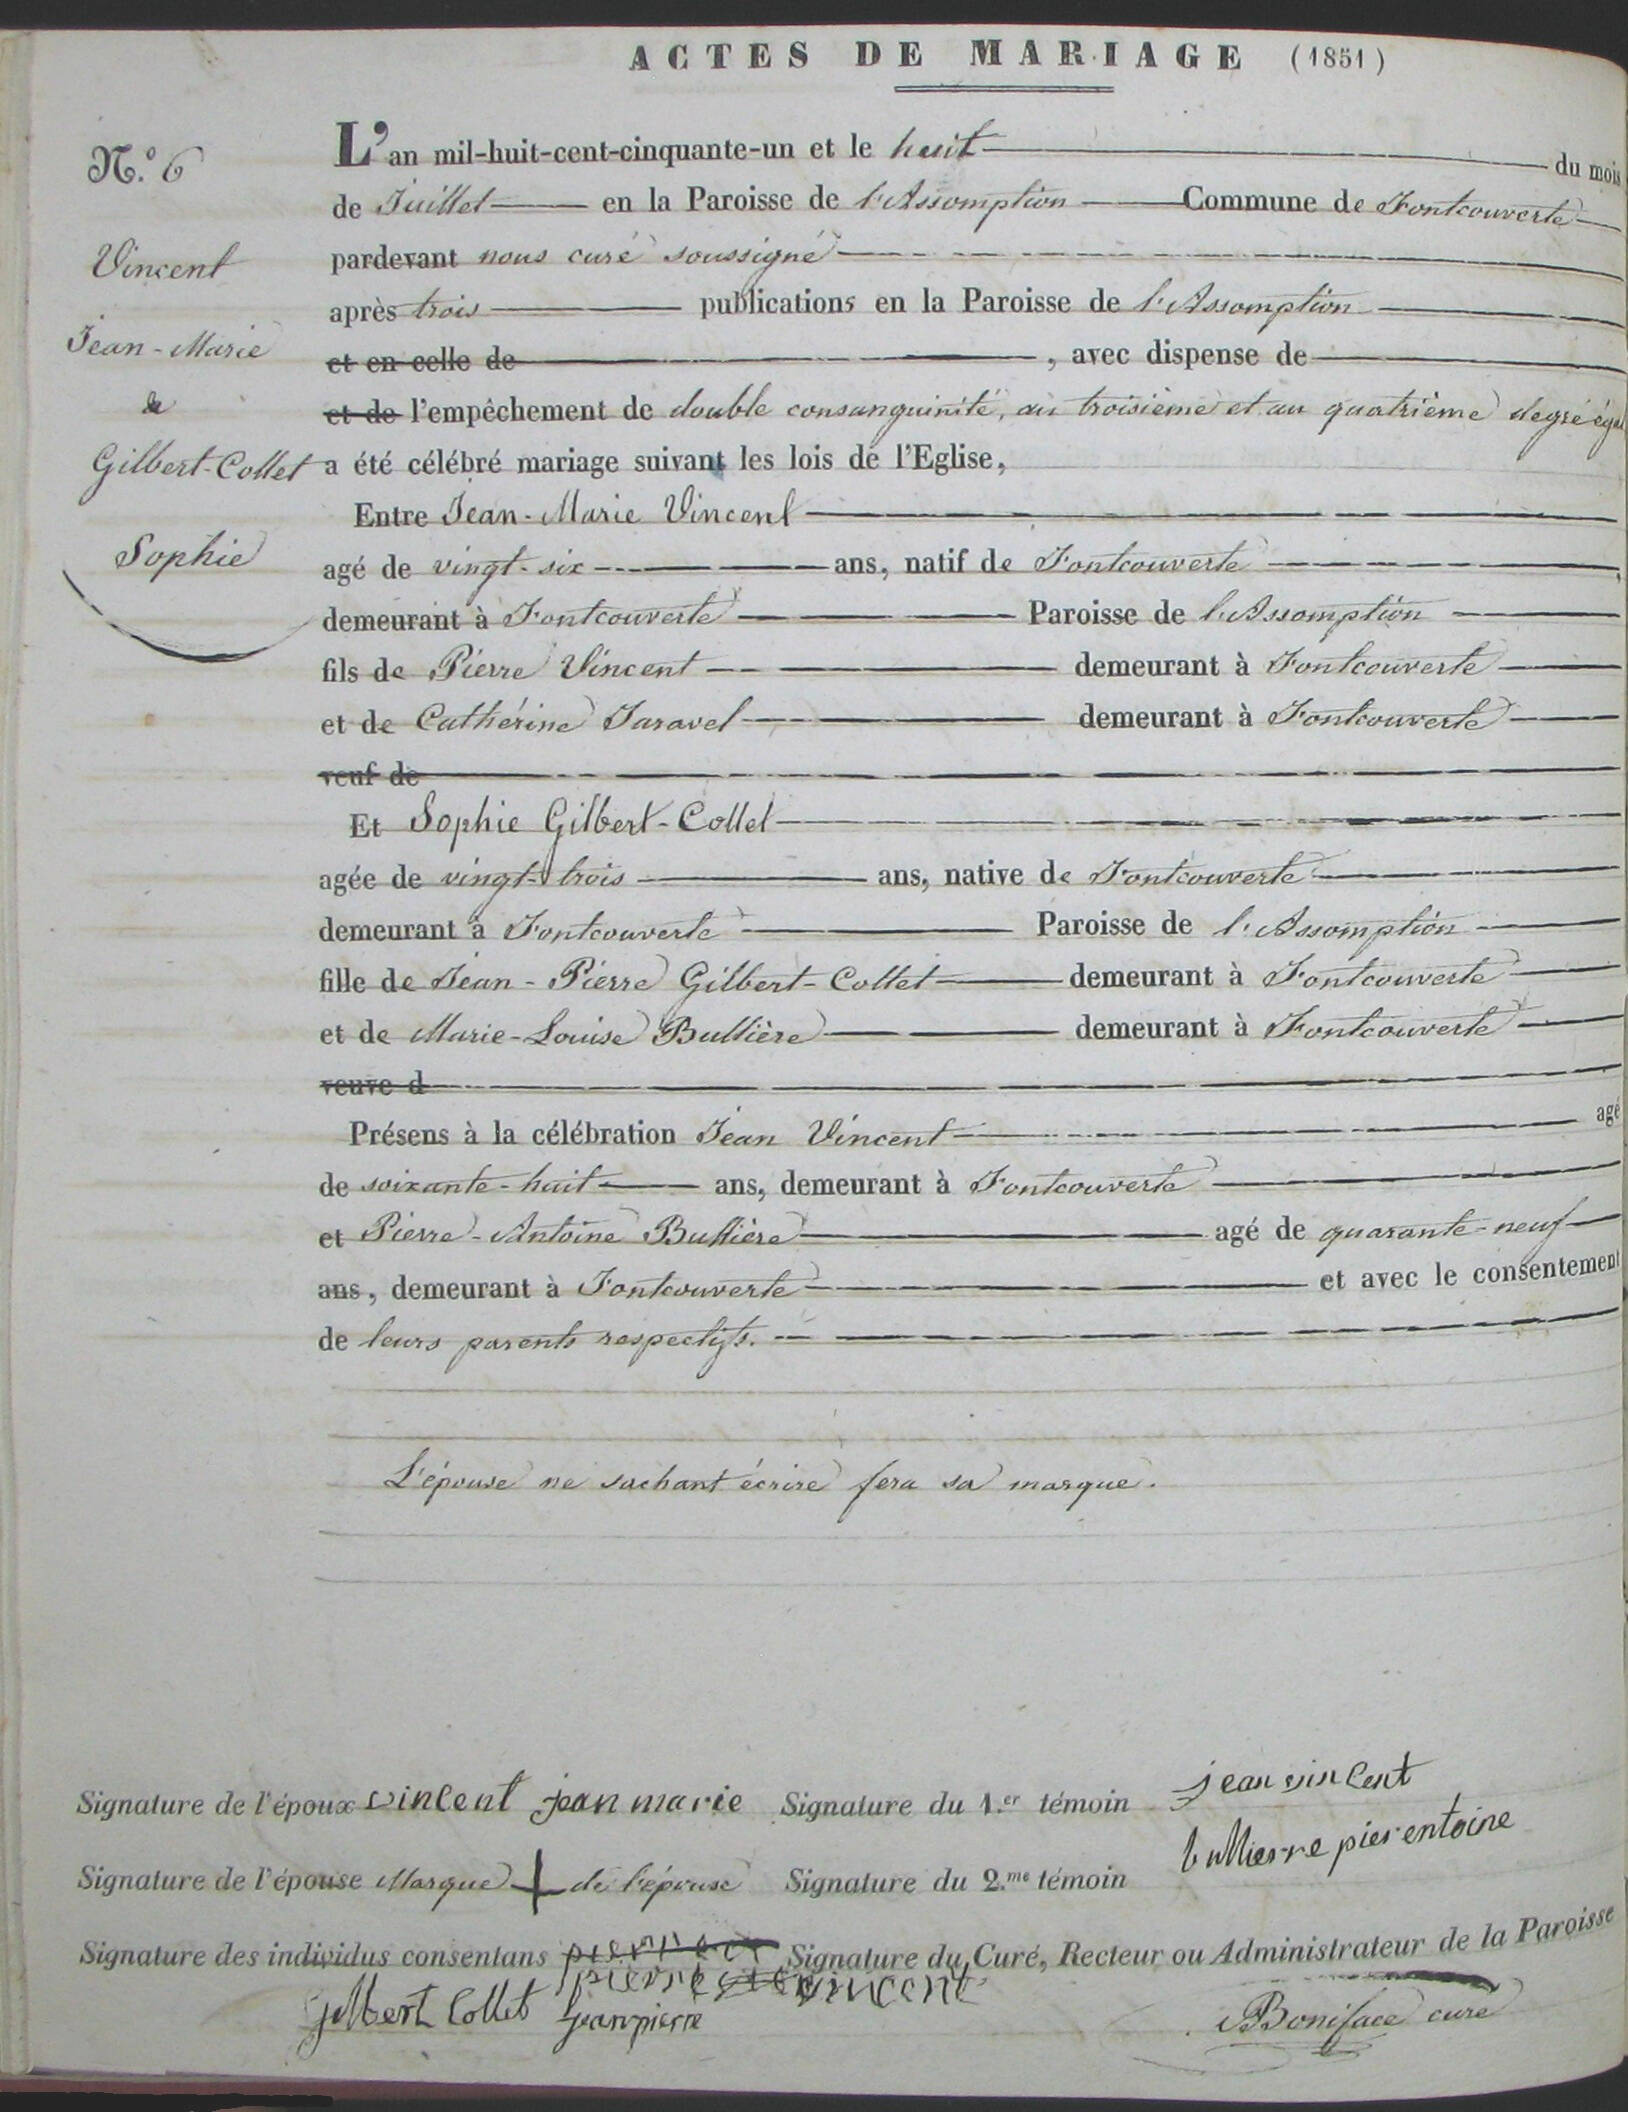 ACTES DE MARIAGE (1851)
N.o 6
Vincent
Jean-Marie
&
Gilbert-Collet
Sophie
L'an mil-huit-cent-cinquante-un et le huit du mois
de Juillet en la Paroisse de l'Assomption Commune de Fontcouverte
pardevant nous curé soussigné
après trois publications en la Paroisse de l'Assomption
et en celle de , avec dispense de
et de l'empêchement de double consanguinité, au troisième et au quatrième degré égal
a été célébré mariage suivant les lois de l'Eglise,
Entre Jean-Marie Vincent
agé de vingt-six ans, natif de Fontcouverte
demeurant à Fontcouverte Paroisse de l'Assomption
fils de Pierre Vincent demeurant à Fontcouverte
et de Cathérine Taravel demeurant à Fontcouverte
veuf de
Et Sophie Gilbert-Collet
agée de vingt-trois ans, native de Fontcouverte
demeurant à Fontcouverte Paroisse de l'Assomption
fille de Jean-Pierre Gilbert-Collet demeurant à Fontcouverte
et de Marie-Louise Bullière demeurant à Fontcouverte
veuve d
Présens à la célébration Jean Vincent agé
de soixante-huit ans, demeurant à Fontcouverte
et Pierre-Antoine Bullière agé de quarante-neuf
ans, demeurant à Fontcouverte et avec le consentement
de leurs parents respectifs.
L'épouse ne sachant écrire fera sa marque.
Signature de l'époux vincent jean marie Signature du 1.er témoin jean vincent
Signature de l'épouse Marque + de l'épouse Signature du 2.me témoin bullierre pier entoine
Signature des individus consentans Signature du Curé, Recteur ou Administrateur de la Paroisse
pierre vincent
gilbert Collet jean pierre Boniface curé